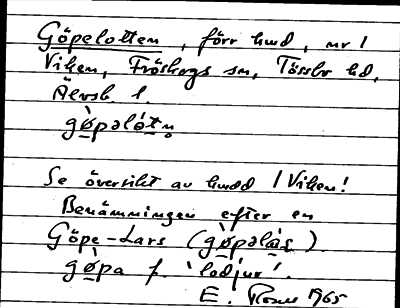 Göpelotten, förr hmd, nr 1
Viken, Fröskogs sn, Tössbo hd,
Älvsb. l.
gø̀pəlótn̥
Se översikt av hmdd / Viken!
Benämningen efter en
Göpe-Lars (gø̀pəlás̠).
gø̀pa f. 'lodjur'.
E. 1965